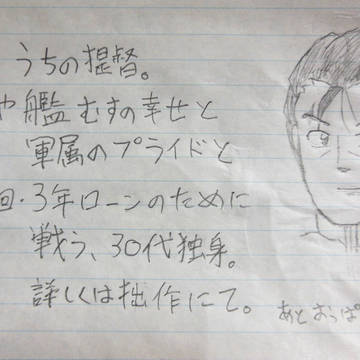 うちの提督。
や艦むすの幸せと
軍属のプライドと
回・3年ローンのために
戦う、30代独身。
詳しくは拙作にて。
あとおっぱ